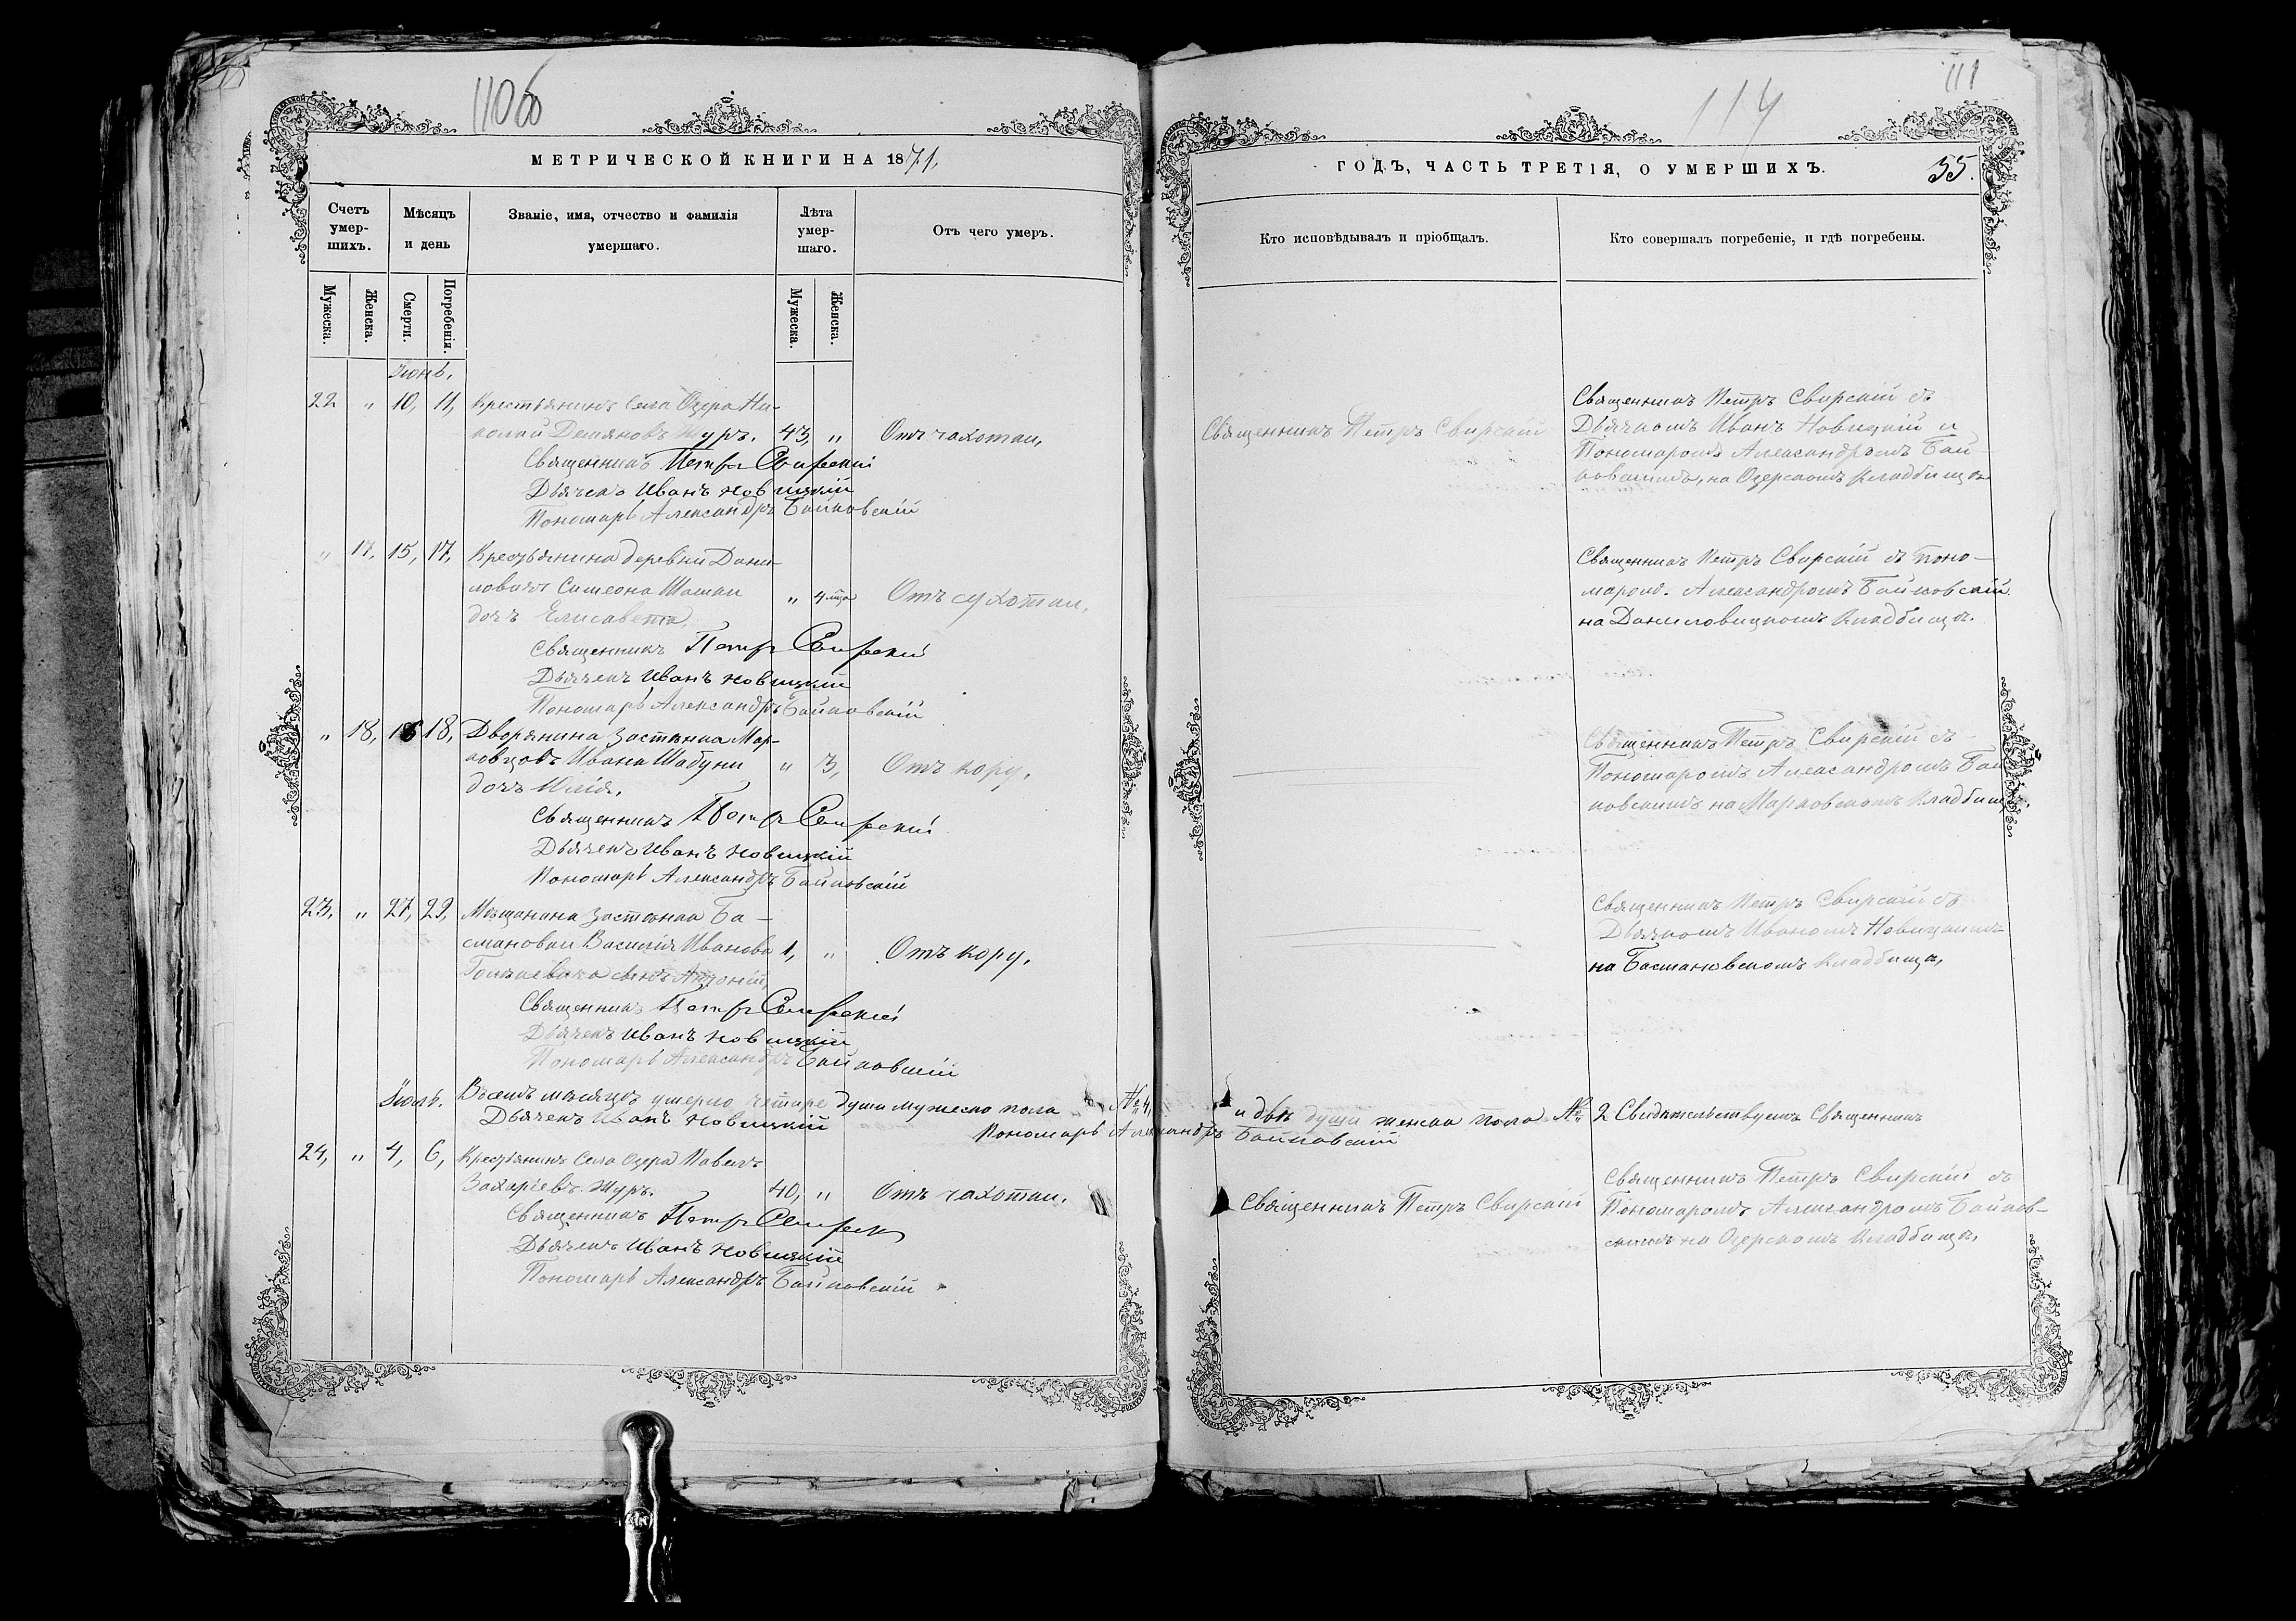 110б
МЕТРИЧЕСКОЙ КНИГИ НА 1871.
Счетъ умер-шихъ.
Мѣсяцъ и день
Званіе, имя, отчество и фамилія умершаго.
Лѣта умер-шаго.
Отъ чего умеръ.
Мужеска.
Женска.
Смерти.
Погребенія.
Мужеска.
Женска.
Іюнь.
22 " 10, 11, Крестьянинъ Села Озера Ни-
колай Демяновъ Журъ. 43, " Отъ чахотки,
Священникъ Петръ Свирскій
Дьячекъ Иванъ Новицкій
Пономарь Александръ Байковскій
" 17, 15, 17, Крестьянина деревни Дани-
ловичъ Симеона Шашки " 4 мца Отъ сухотки,
дочь Елисавета,
Священникъ Петръ Свирскій
Дьячекъ Иванъ Новицкій
Пономарь Александръ Байковскій
" 18, 16 18, Дворянина Застѣнка Мар-
ковцовъ Ивана Шабуни " 3, Отъ кору,
дочь Юлія,
Священникъ Петръ Свирскій
Дьячекъ Иванъ Новицкій
Пономарь Александръ Байковскій
23, " 27, 29, Мѣщанина Застѣнка Ба-
смановки Василія Иванова 1, " Отъ кору,
сынъ Антоній,
Священникъ Петръ Свирскій
Дьячекъ Иванъ Новицкій
Пономарь Александръ Байковскій
Іюль. Въ семъ мѣсяцѣ умерло четыре души мужеска пола № 4,
Дьячекъ Иванъ Новицкій Пономарь Александръ
24, " 4, 6, Крестьянинъ Села Озера Павелъ
Захаріевъ Журъ. 40, " Отъ чахотки,
Священникъ Петръ Свирск
Дьячекъ Иванъ Новицкій
Пономарь Александръ Байковскій
111
114
ГОДЪ, ЧАСТЬ ТРЕТІЯ, О УМЕРШИХЪ.
55.
Кто исповѣдывалъ и пріобщалъ.
Кто совершалъ погребеніе, и гдѣ погребены.
Священникъ Петръ Свирскій
Священникъ Петръ Свирскій съ
Дьячкомъ Иванъ Новицкій и
Пономаромъ Александромъ Бай-
ковскимъ, на Озерскомъ кладбищѣ
Священникъ Петръ Свирскій съ Поно-
маром. Александромъ Байковскій
на Даниловицкомъ кладбищѣ.
Священникъ Петръ Свирскій съ
Пономаромъ Александромъ Бай
ковскимъ на Марковскомъ кладбищѣ.
Священникъ Петръ Свирскій съ
Дьячкомъ Иваномъ Новицкимъ
на Басмановскомъ кладбищѣ,
и двѣ души женска пола № 2 Свидѣтельствуемъ Священникъ
Байковскій
Священникъ Петръ Свирскій
Священникъ Петръ Свирскій съ
Пономаромъ Александромъ Байков-
скимъ на Озерскомъ кладбищѣ,